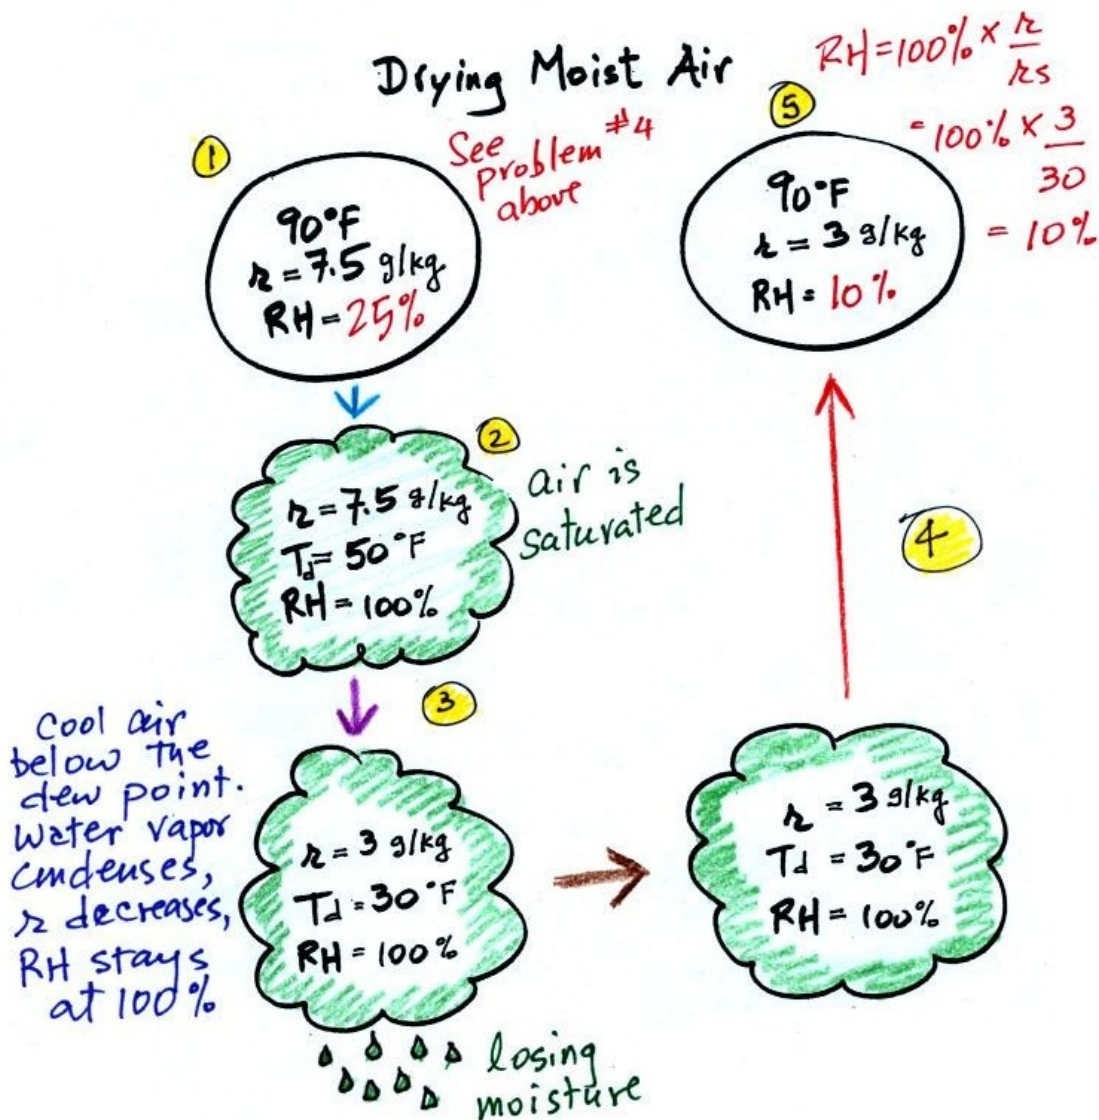 Drying Moist Air
RH = 100% × r/rs
= 100% × 3/30
= 10%
1
See
problem #4
above
90°F
r = 7.5 g/kg
RH = 25%
5
90°F
r = 3 g/kg
RH = 10%
2
r = 7.5 g/kg
Td = 50°F
RH = 100%
air is
saturated
4
3
Cool air
below the
dew point.
Water vapor
condenses,
r decreases,
RH stays
at 100%
r = 3 g/kg
Td = 30°F
RH = 100%
r = 3 g/kg
Td = 30°F
RH = 100%
losing
moisture